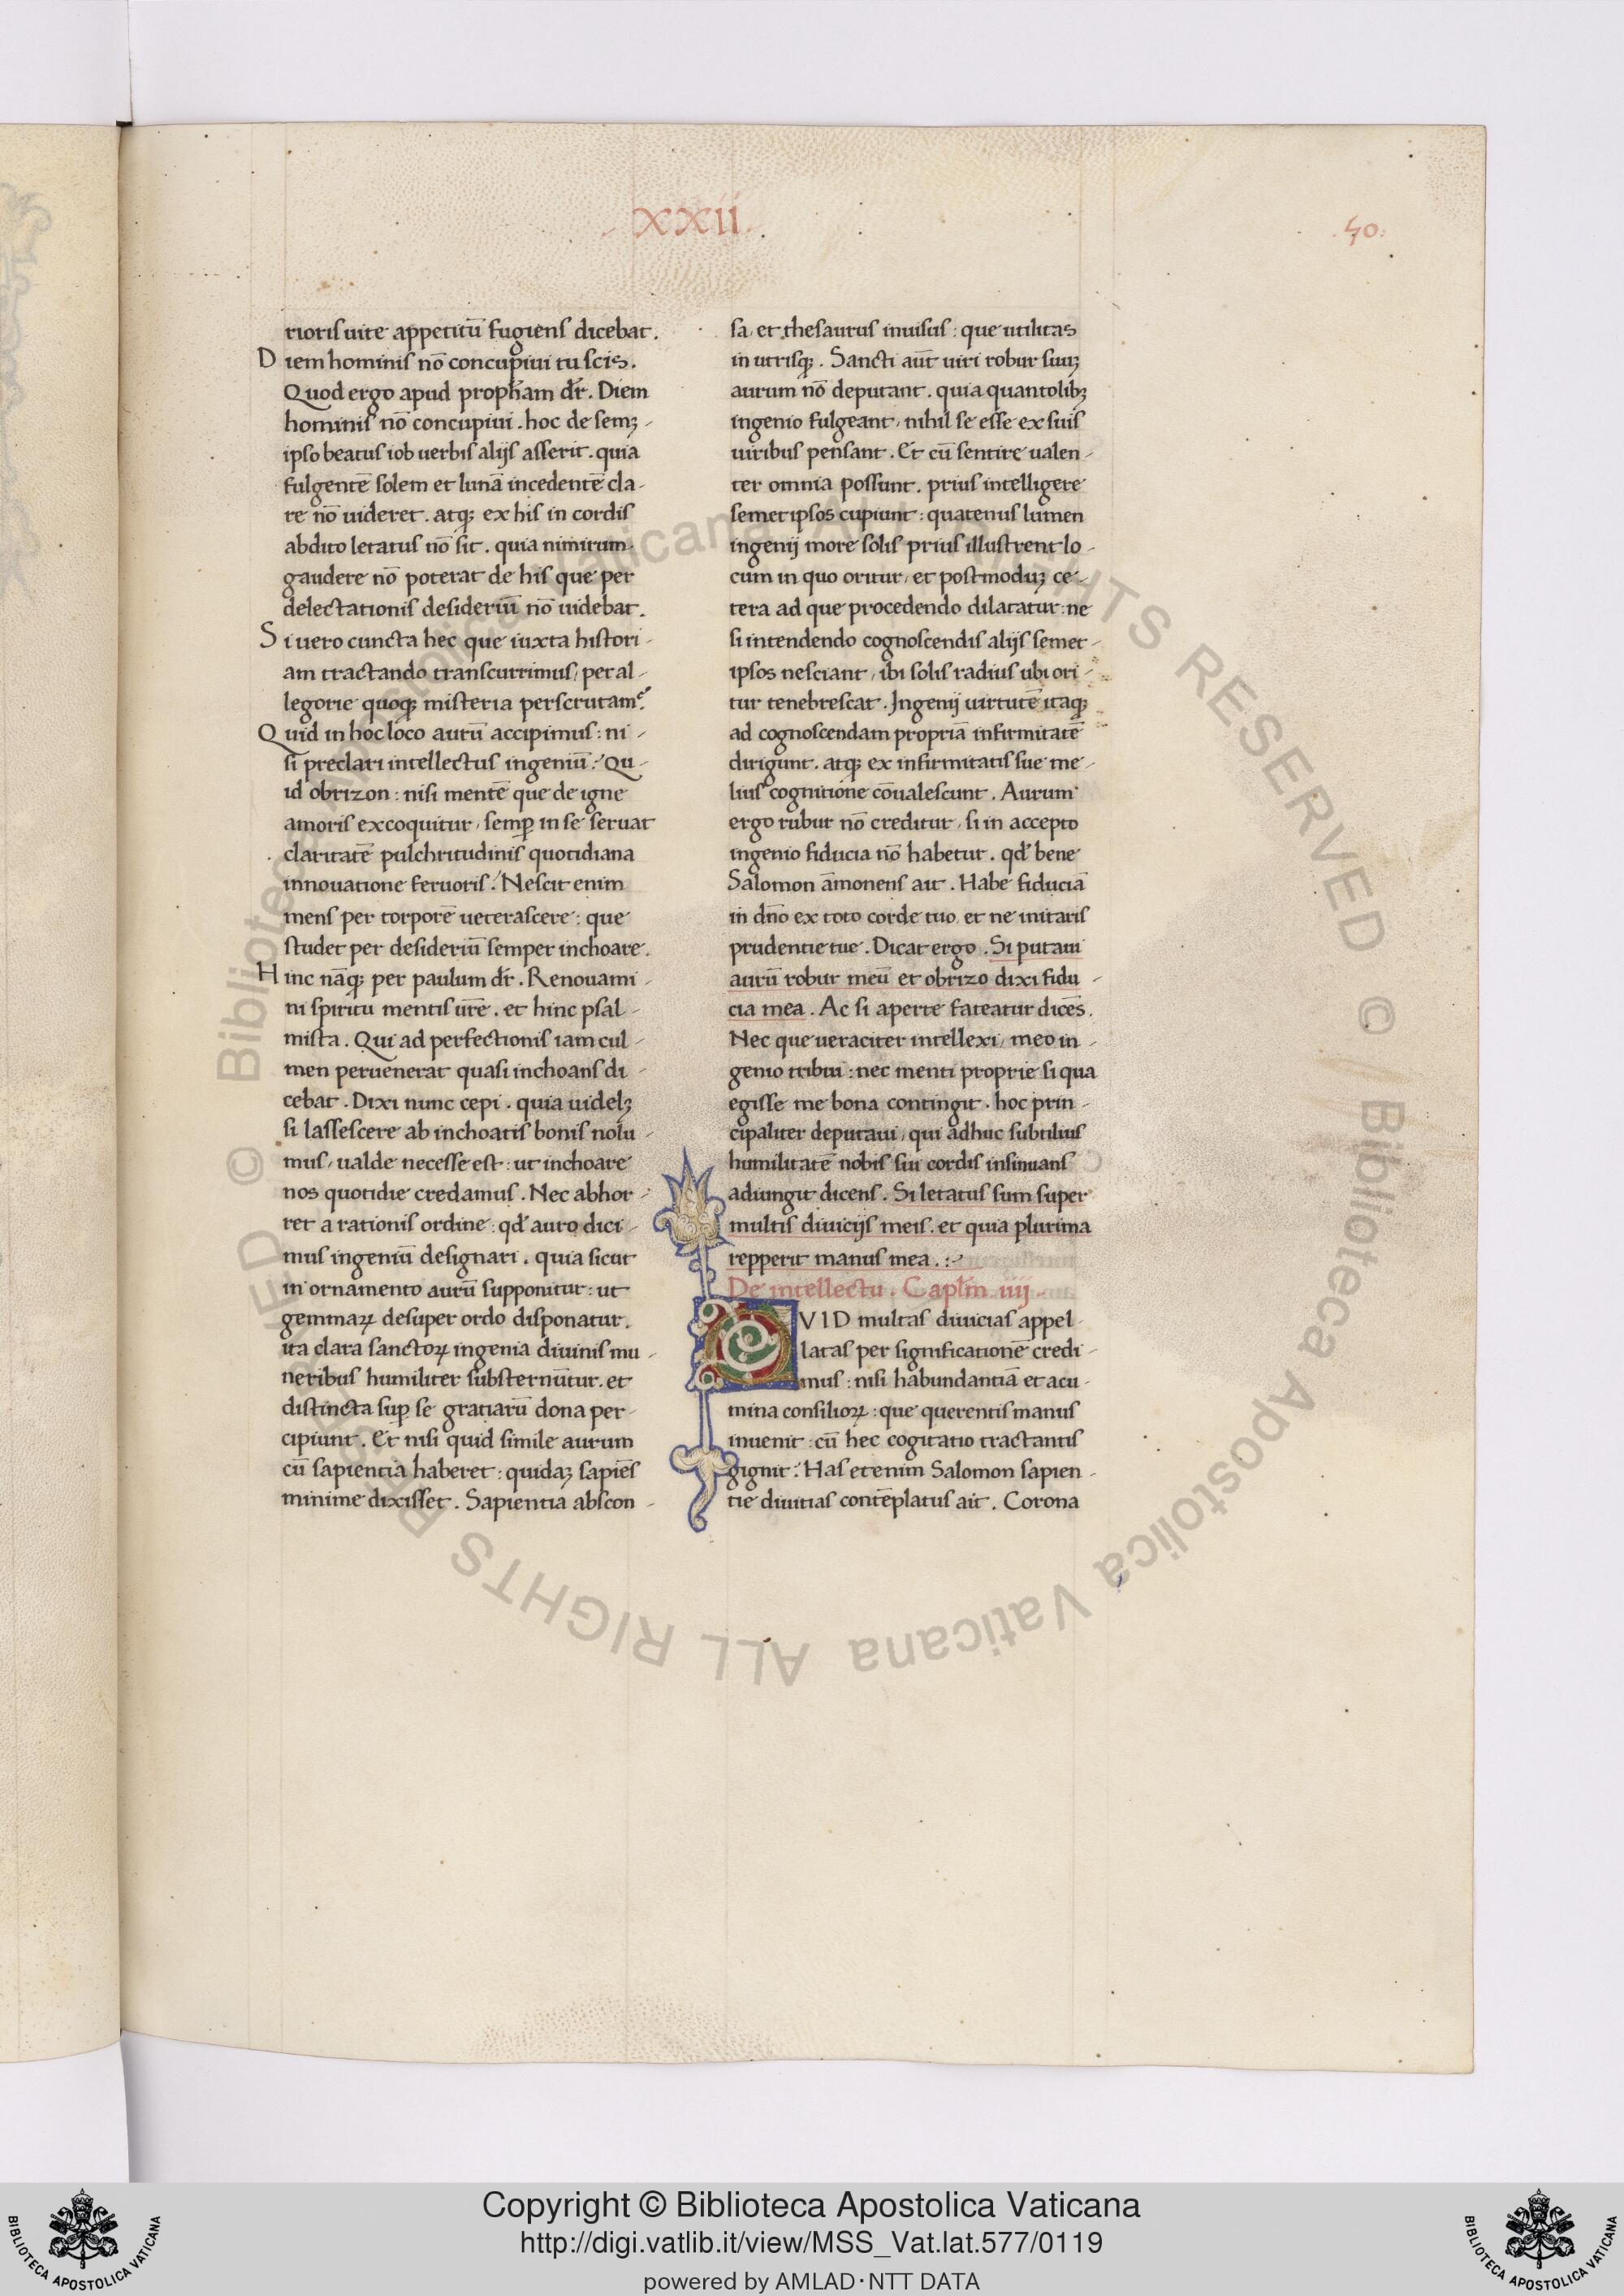 . XXII .
. 40 .
rioris uite appetitū fugiens dicebat.
Diem hominis nō concupiui tu scis.
Quod ergo apud prophꝫam dr̄. Diem
hominis nō concupiui. hoc de semꝫ-
ipso beatus iob uerbis alijs asserit. quia
fulgentē solem et lunā incedentē cla-
re nō uideret. atqꝫ ex his in cordis
abdito letatus nō sit. quia nimirum
gaudere nō poterat de his que per
delectationis desideriū nō uidebat.
Si uero cuncta hec que iuxta histori-
am tractando transcurrimus, per al-
legorie quoqꝫ misteria perscrutam᷒.
Quid in hoc loco aurū accipimus: ni-
si preclari intellectus ingeniū? Qu-
id obrizon: nisi mentē que de igne
amoris excoquitur, semꝑ in se seruat
claritatē pulchritudinis quotidiana
innouatione feruoris? Nescit enim
mens per torporē ueterascere: que
studet per desideriū semper inchoare.
Hinc nāqꝫ per paulum dr̄. Renouami-
ni spiritu mentis ur̄e. et hinc psal-
mista. Qui ad perfectionis iam cul-
men peruenerat quasi inchoans di-
cebat. Dixi nunc cepi. quia uidelꝫ
si lassescere ab inchoatis bonis nolu-
mus, ualde necesse est: ut inchoare
nos quotidie credamus. Nec abhor-
ret a rationis ordine: qd' auro dici-
mus ingeniū designari. quia sicut
in ornamento aurū supponitur: ut
gemmaꝝ desuper ordo disponatur.
ita clara sanctoꝝ ingenia diuinis mu-
neribus humiliter substernūtur. et
distincta suꝑ se gratiarū dona per-
cipiunt. Et nisi quid simile aurum
cū sapientia haberet: quidaꝫ sapiēs
minime dixisset. Sapientia abscon-
sa, et thesaurus inuisus: que utilitas
in utrisqꝫ. Sancti aūt uiri robur suuꝫ
aurum nō deputant. quia quantolibꝫ
ingenio fulgeant, nihil se esse ex suis
uiribus pensant. Et cū sentire ualen-
ter omnia possunt. prius intelligere
semetipsos cupiunt: quatenus lumen
ingenij more solis prius illustrent lo-
cum in quo oritur, et postmoduꝫ ce-
tera ad que procedendo dilatatur: ne
si intendendo cognoscendis alijs semet-
ipsos nesciant, ibi solis radius ubi ori-
tur tenebrescat. Ingenij uirtutē itaqꝫ
ad cognoscendam propriā infirmitatē
dirigunt. atqꝫ ex infirmitatis sue me-
lius cognitione cōualescunt. Aurum
ergo rubur nō creditur, si in accepto
ingenio fiducia nō habetur. qd' bene
Salomon āmonens ait. Habe fiduciā
in dn̄o ex toto corde tuo, et ne initaris
prudentie tue. Dicat ergo. Si putaui
aurū robur meū et obrizo dixi fidu-
cia mea. Ac si aperte fateatur dicēs.
Nec que ueraciter intellexi, meo in-
genio tribui: nec menti proprie si qua
egisse me bona contingit. hoc prin-
cipaliter deputaui, qui adhuc subtilius
humilitatē nobis sui cordis insinuans
adiungit dicens. Si letatus sum super
multis diuicijs meis. et quia plurima
repperit manus mea.:~
De intellectu. Capl̄m. iiij
QVID multas diuicias appel-
latas per significationē credi-
mus: nisi habundantiā et acu-
mina consilioꝝ: que querentis manus
inuenit: cū hec cogitatio tractantis
gignit? Has etenim Salomon sapien-
tie diuitias contēplatus ait. Corona
© Biblioteca Apostolica Vaticana ALL RIGHTS RESERVED © Biblioteca Apostolica Vaticana ALL RIGHTS RESERVED
Copyright © Biblioteca Apostolica Vaticana
http://digi.vatlib.it/view/MSS_Vat.lat.577/0119
powered by AMLAD·NTT DATA
BIBLIOTECA APOSTOLICA VATICANA
BIBLIOTECA APOSTOLICA VATICANA